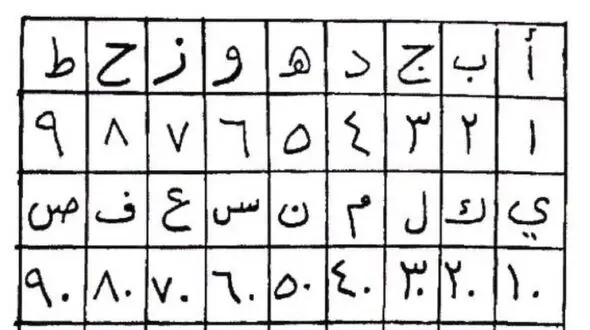 أ ب ج د ه و ز ح ط
١ ٢ ٣ ٤ ٥ ٦ ٧ ٨ ٩
ي ك ل م ن س ع ف ص
١٠ ٢٠ ٣٠ ٤٠ ٥٠ ٦٠ ٧٠ ٨٠ ٩٠